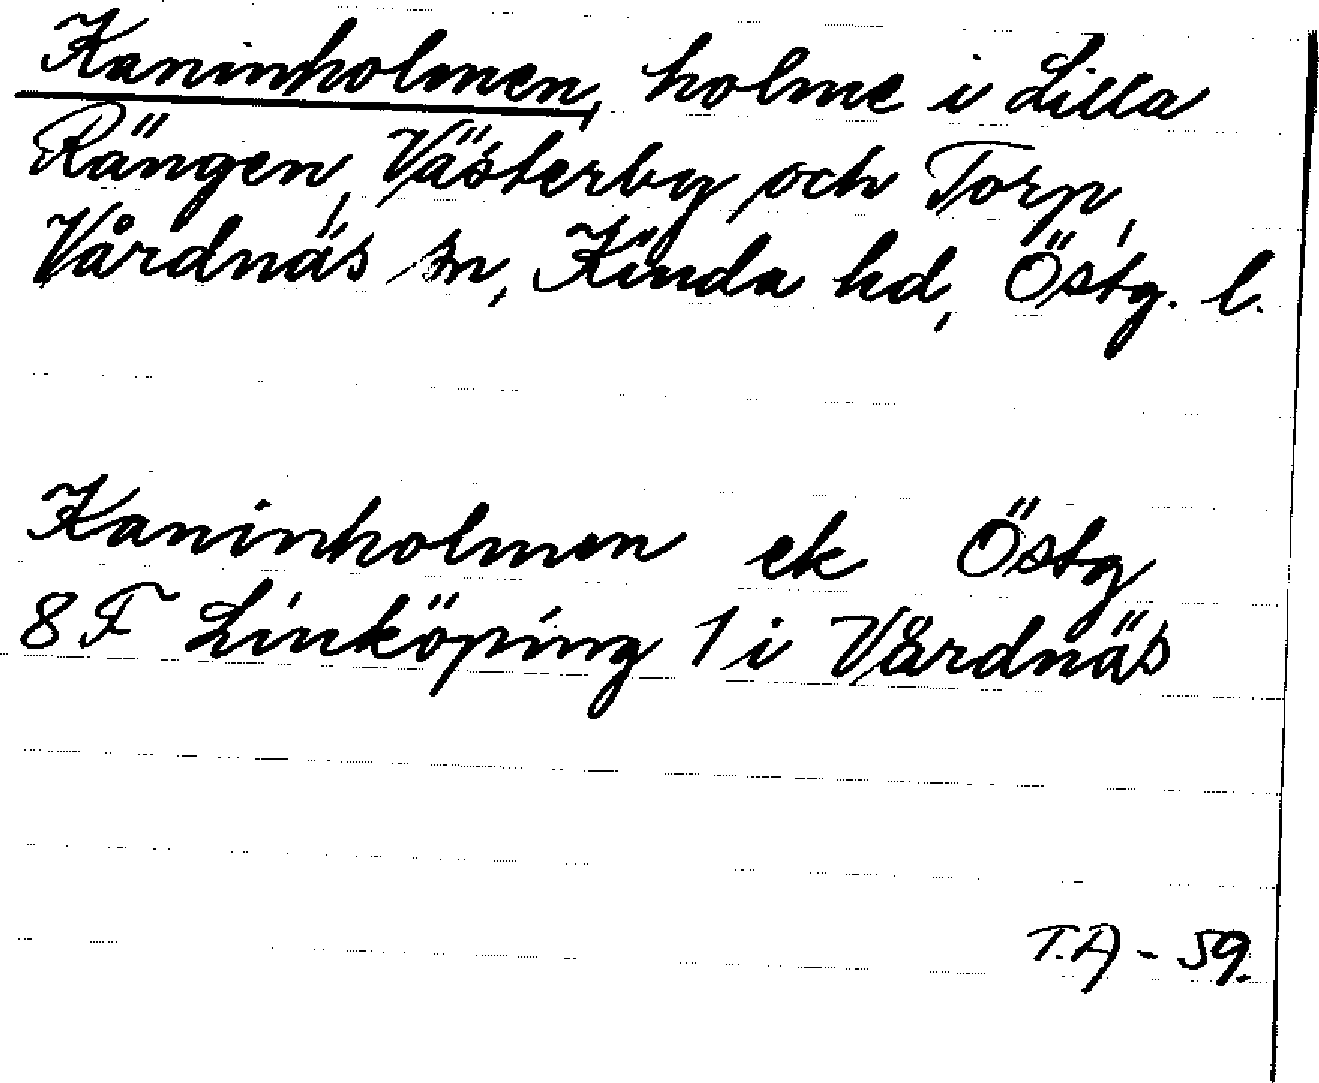 Kaninholmen, holme i Lilla
Rängen, Västerby och Torp,
Vårdnäs sn, Kinda hd, Östg. l.
Kaninholmen ek Östg
8 F Linköping 1 i Vårdnäs
T.A - 59.